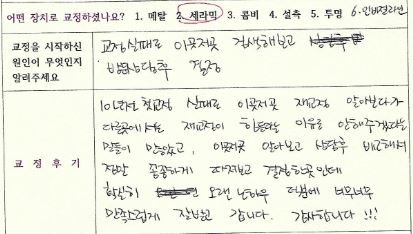 어떤 장치로 교정하셨나요? 1. 메탈 2. 세라믹 3. 콤비 4. 설측 5. 투명 6. 인비절라인
교정을 시작하신 교정실패로 이곳저곳 검색해보고
원인이 무엇인지 방문상담후 결정
알려주세요
10년전 첫교정 실패로 이곳저곳 재교정 알아보다가
다른곳에서는 재교정이 힘들다는 이유로 안해주겠다는
말들이 많았고, 이곳저곳 알아보고 상담후 비교해서
교 정 후 기 정말 꼼꼼하게 따져보고 결정한곳인데
확실히 오랜 노하우 덕분에 너무너무
만족스럽게 잘받고 갑니다. 감사합니다 !!!